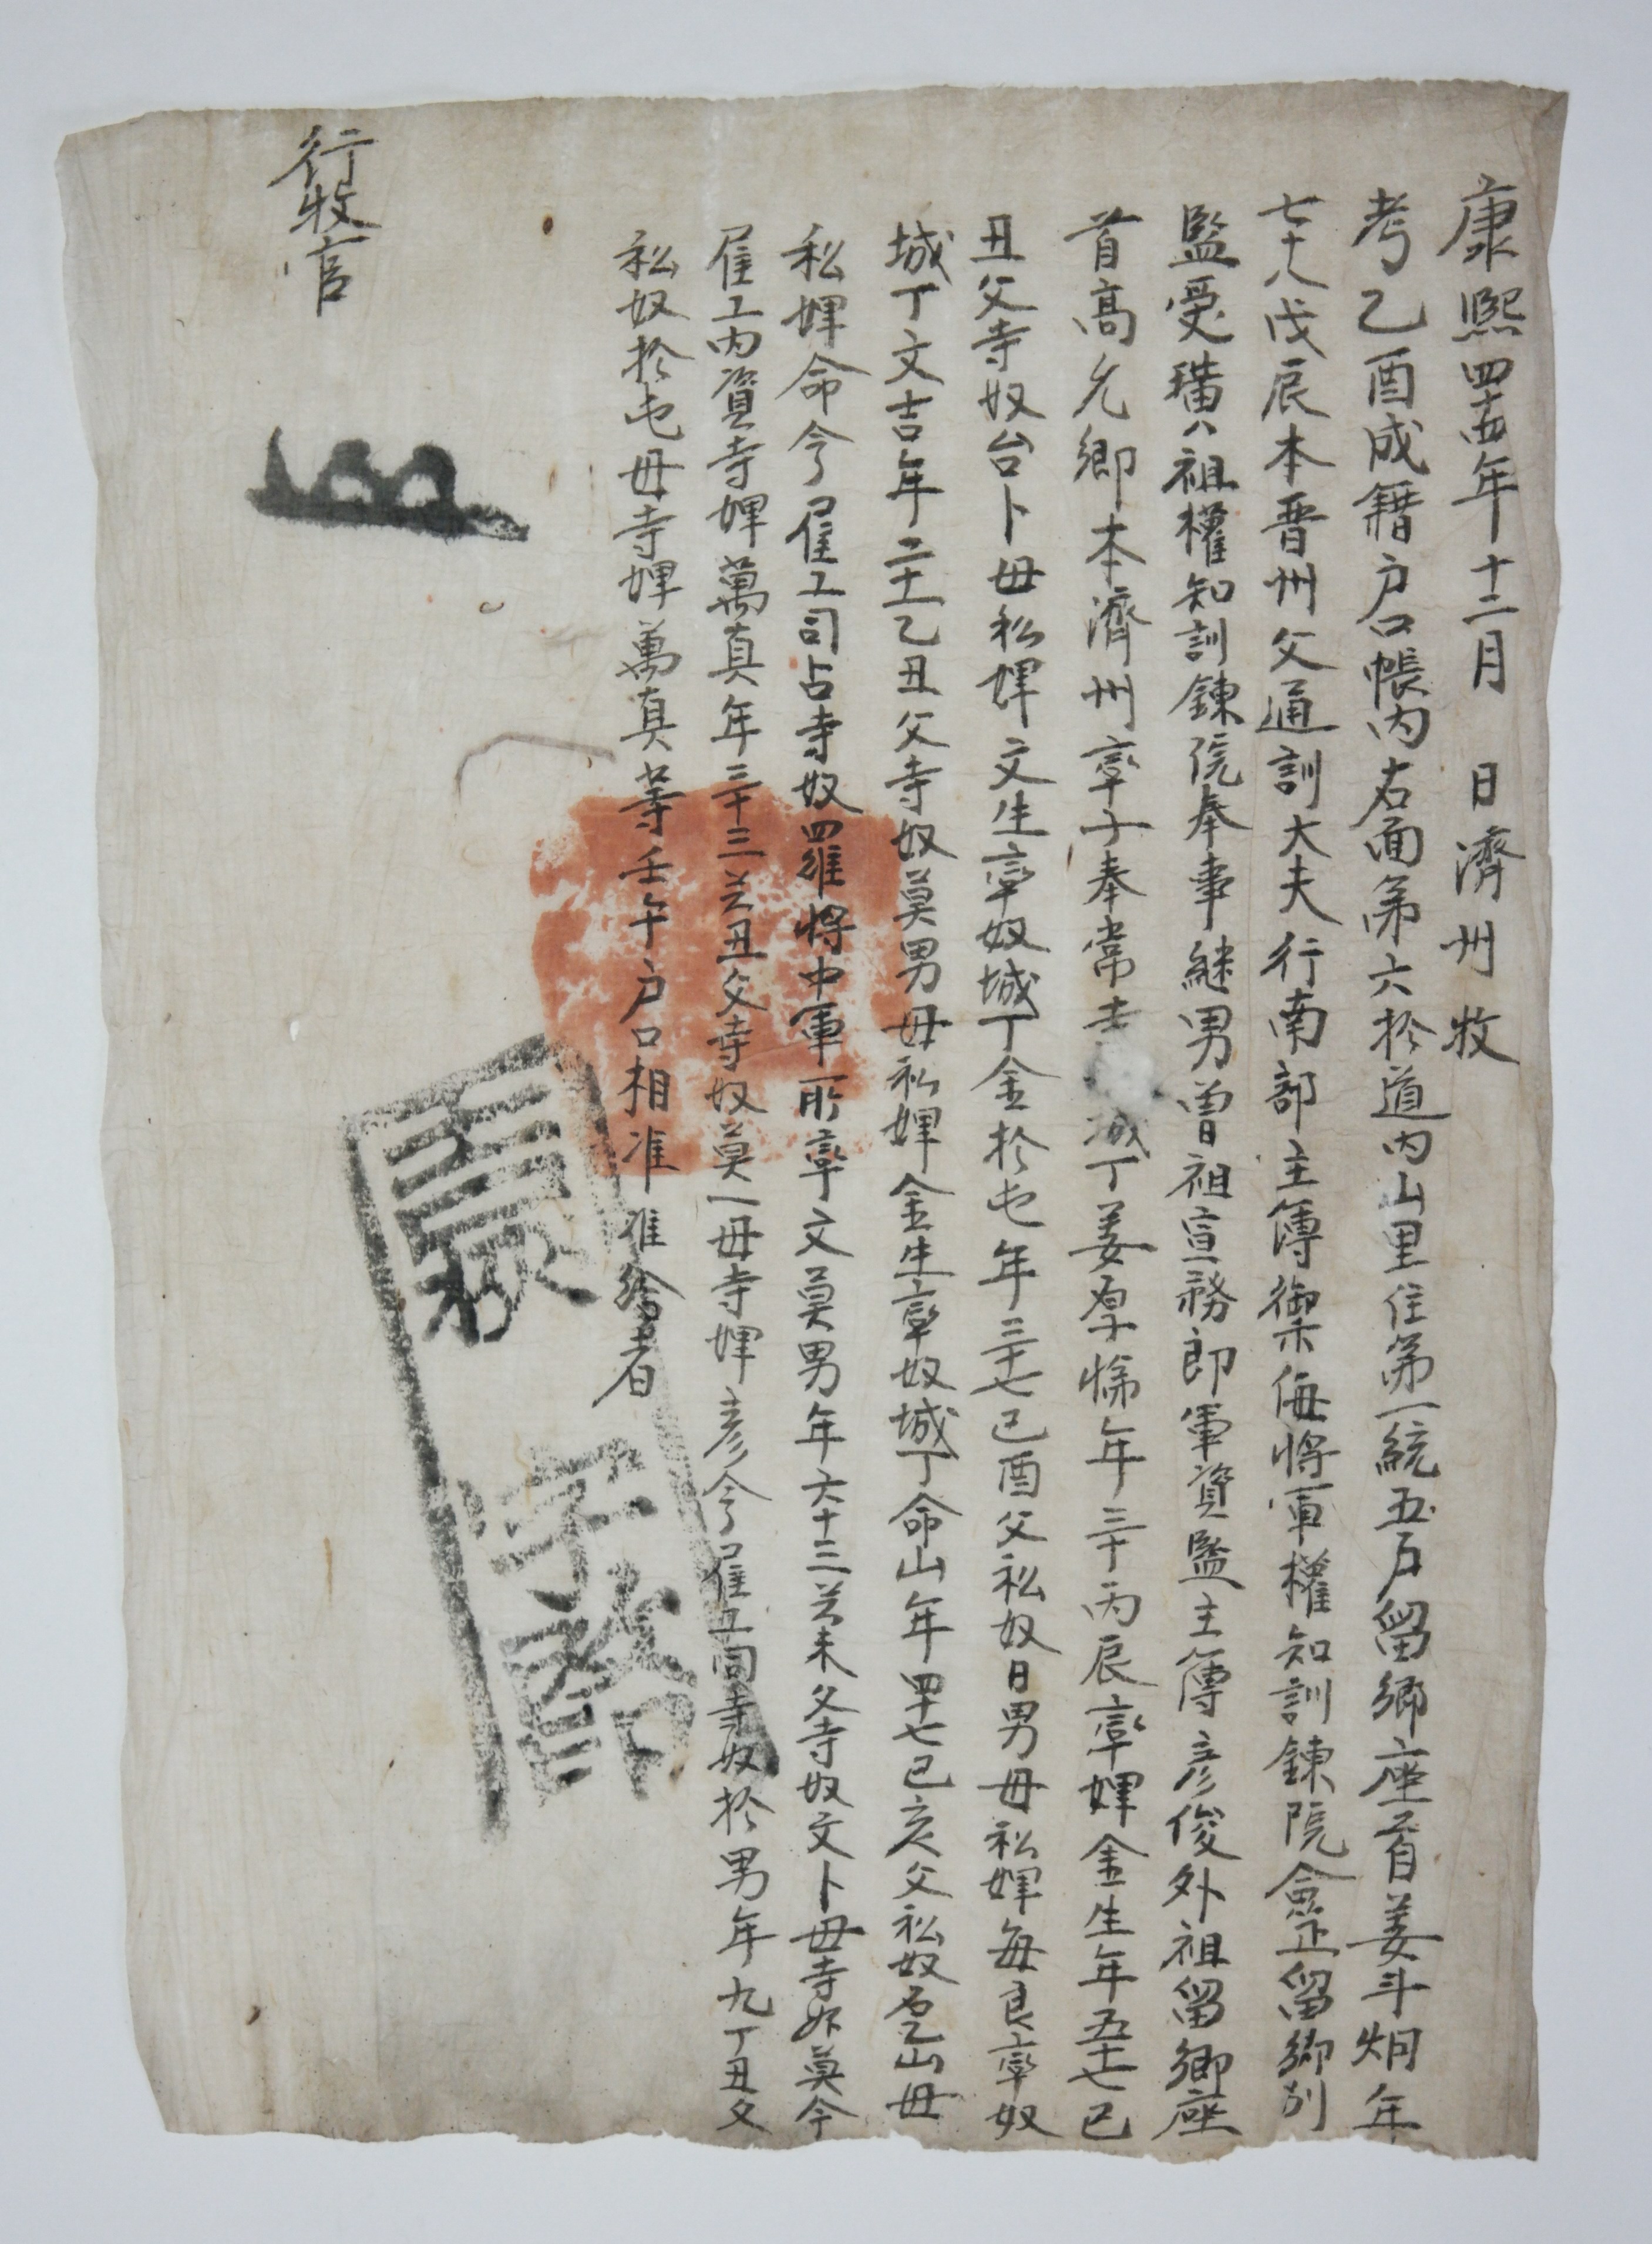 康熙四十五年十二月 日濟州牧
考乙酉成籍戶口帳內右面第六於道內山里住第一統五戶留鄉座首姜斗炯年
七十八戊辰本晋州父通訓大夫行南部主簿禦侮將軍權知訓鍊院僉正留鄉別
監受璜祖權知訓鍊院奉事繼男曾祖宣務郎軍資監主簿彥俊外祖留鄉座
首高允卿本濟州率子奉常寺 城丁姜厚悌年三十丙辰率婢金生年五十七己
丑父寺奴台卜母私婢文生率奴城丁金於屯年三十七己酉父私奴日男母私婢每良率奴
城丁文吉年二十一乙丑父寺奴莫男母私婢金生率奴城丁命山年四十七己亥父私奴 山母
私婢命今雇工司占寺奴羅將中軍所率文莫男年六十三癸未父寺奴文卜母寺婢莫今
雇工內資寺婢萬真年三十三癸丑父寺奴莫一母寺婢彥今雇工同寺奴於男年九丁丑父
私奴於屯母寺婢萬真等壬午戶口相准准給者
行牧官